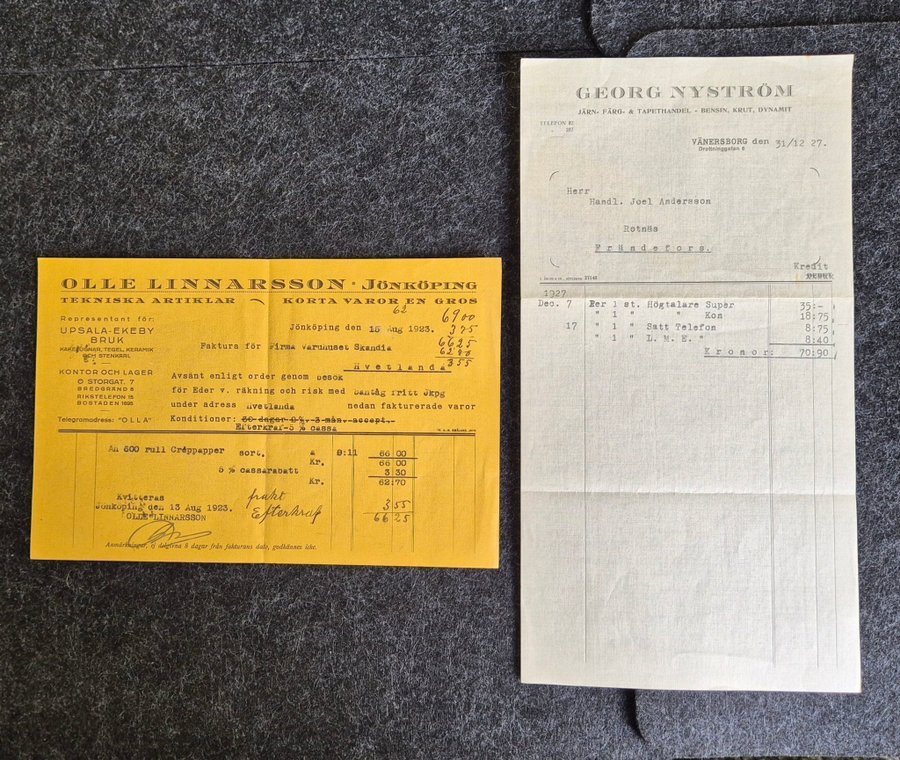 OLLE LINNARSSON · JÖNKÖPING
TEKNISKA ARTIKLAR KORTA VAROR EN GROS
Representant för:
UPSALA-EKEBY
BRUK
KAKELUGNAR, TEGEL, KERAMIK
OCH STENKÄRL
KONTOR OCH LAGER
Ö STORGAT. 7
BREDGRÄND 8
RIKSTELEFON 15
BOSTADEN 1695
Telegramadress: "OLLA"
62
6900
375
6625
6280
355
Jönköping den 15 Aug 1923.
Faktura för Firma Varuhuset Skandia
Hvetlanda
Avsänt enligt order genom besök
för Eder v. räkning och risk med Fritt Jkpg
under adress Hvetlanda nedan fakturerade varor
Konditioner: 30 dagar 2%, 3 mån. accept.
Efterkraf-5 % cassa
Än 600 rull Créppapper sort. a 0:11 66 00
Kr. 66 00
5 % cassarabatt 3 30
Kr. 62:70
Kvitteras
Jönköping den 13 Aug 1923.
OLLE LINNARSSON
frakt
Efterkraf
3 55
66 25
Anmärkningar, ej delgivna 8 dagar från fakturans dato, godkännes icke.
GEORG NYSTRÖM
JÄRN- FÄRG- & TAPETHANDEL - BENSIN, KRUT, DYNAMIT
TELEFON 81
287
VÄNERSBORG den 31/12 27.
Drottninggatan 8
Herr
Handl. Joel Andersson
Rotnäs
Frändefors.
Kredit
DEBET
1927
Dec. 7 Eer 1 st. Högtalare Super 35:-
" 1 " " Kon 18:75
17 " 1 " Satt Telefon 8:75
" 1 " L. M. E. " 8:40
Kronor: 70:90